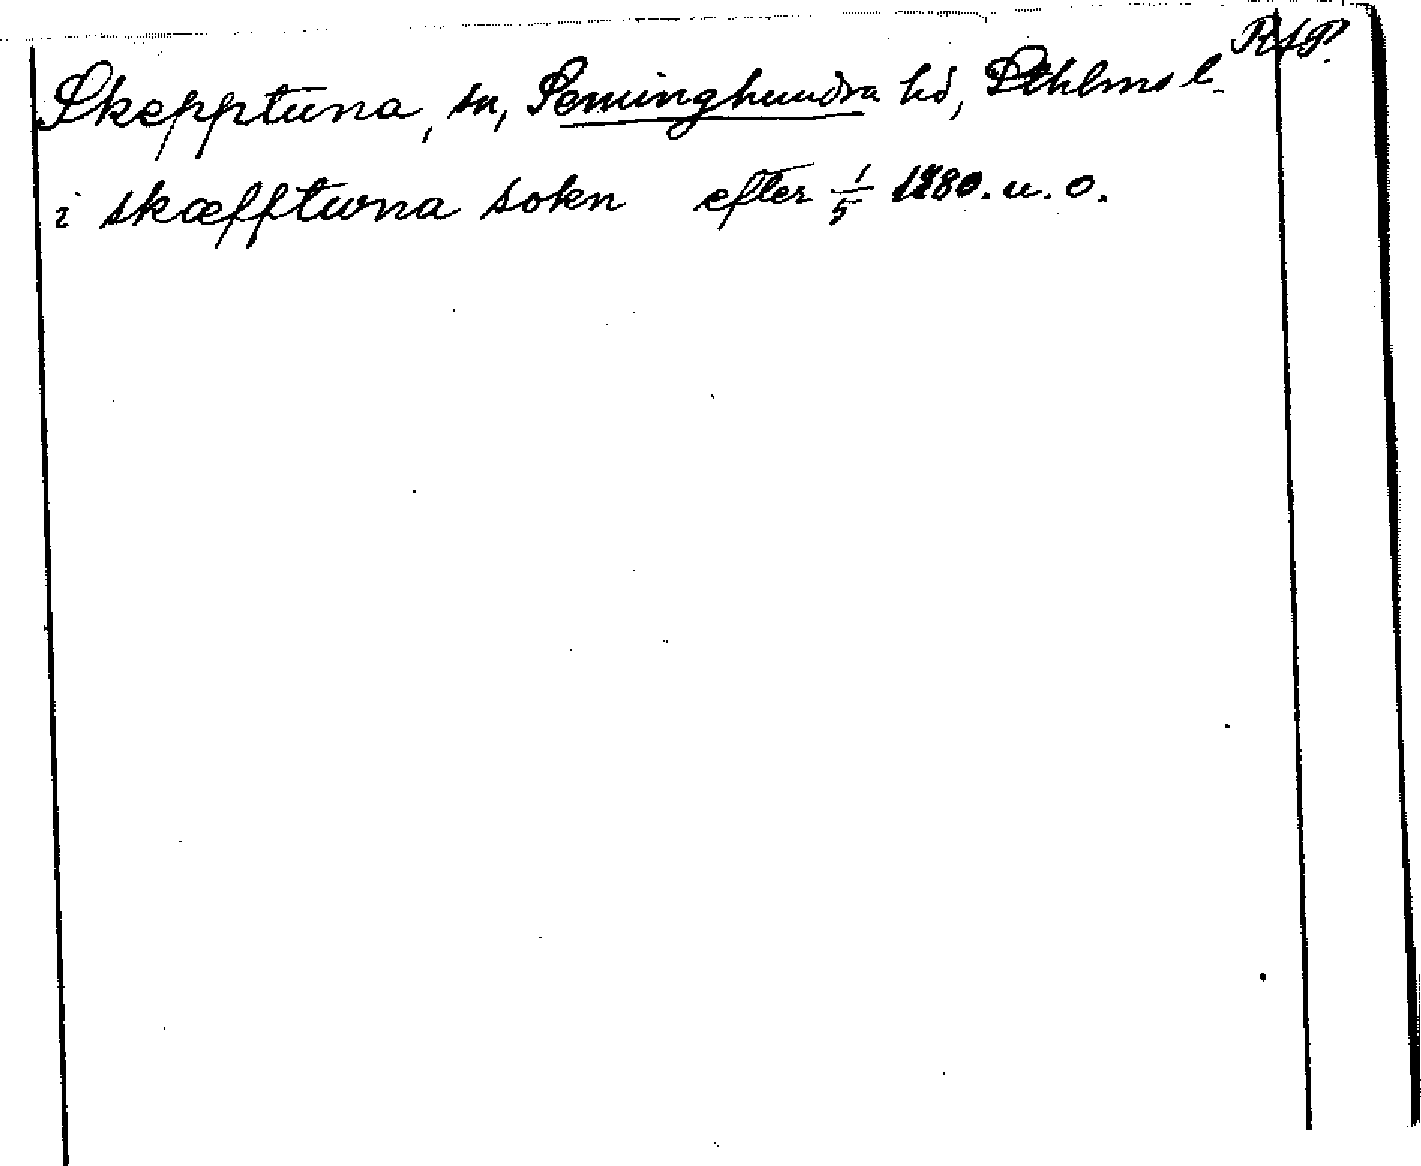 Skepptuna, sn, Seminghundra hd, Sthlms l. RAP.
i skæfftuna sokn efter 1/5 1280. u. o.